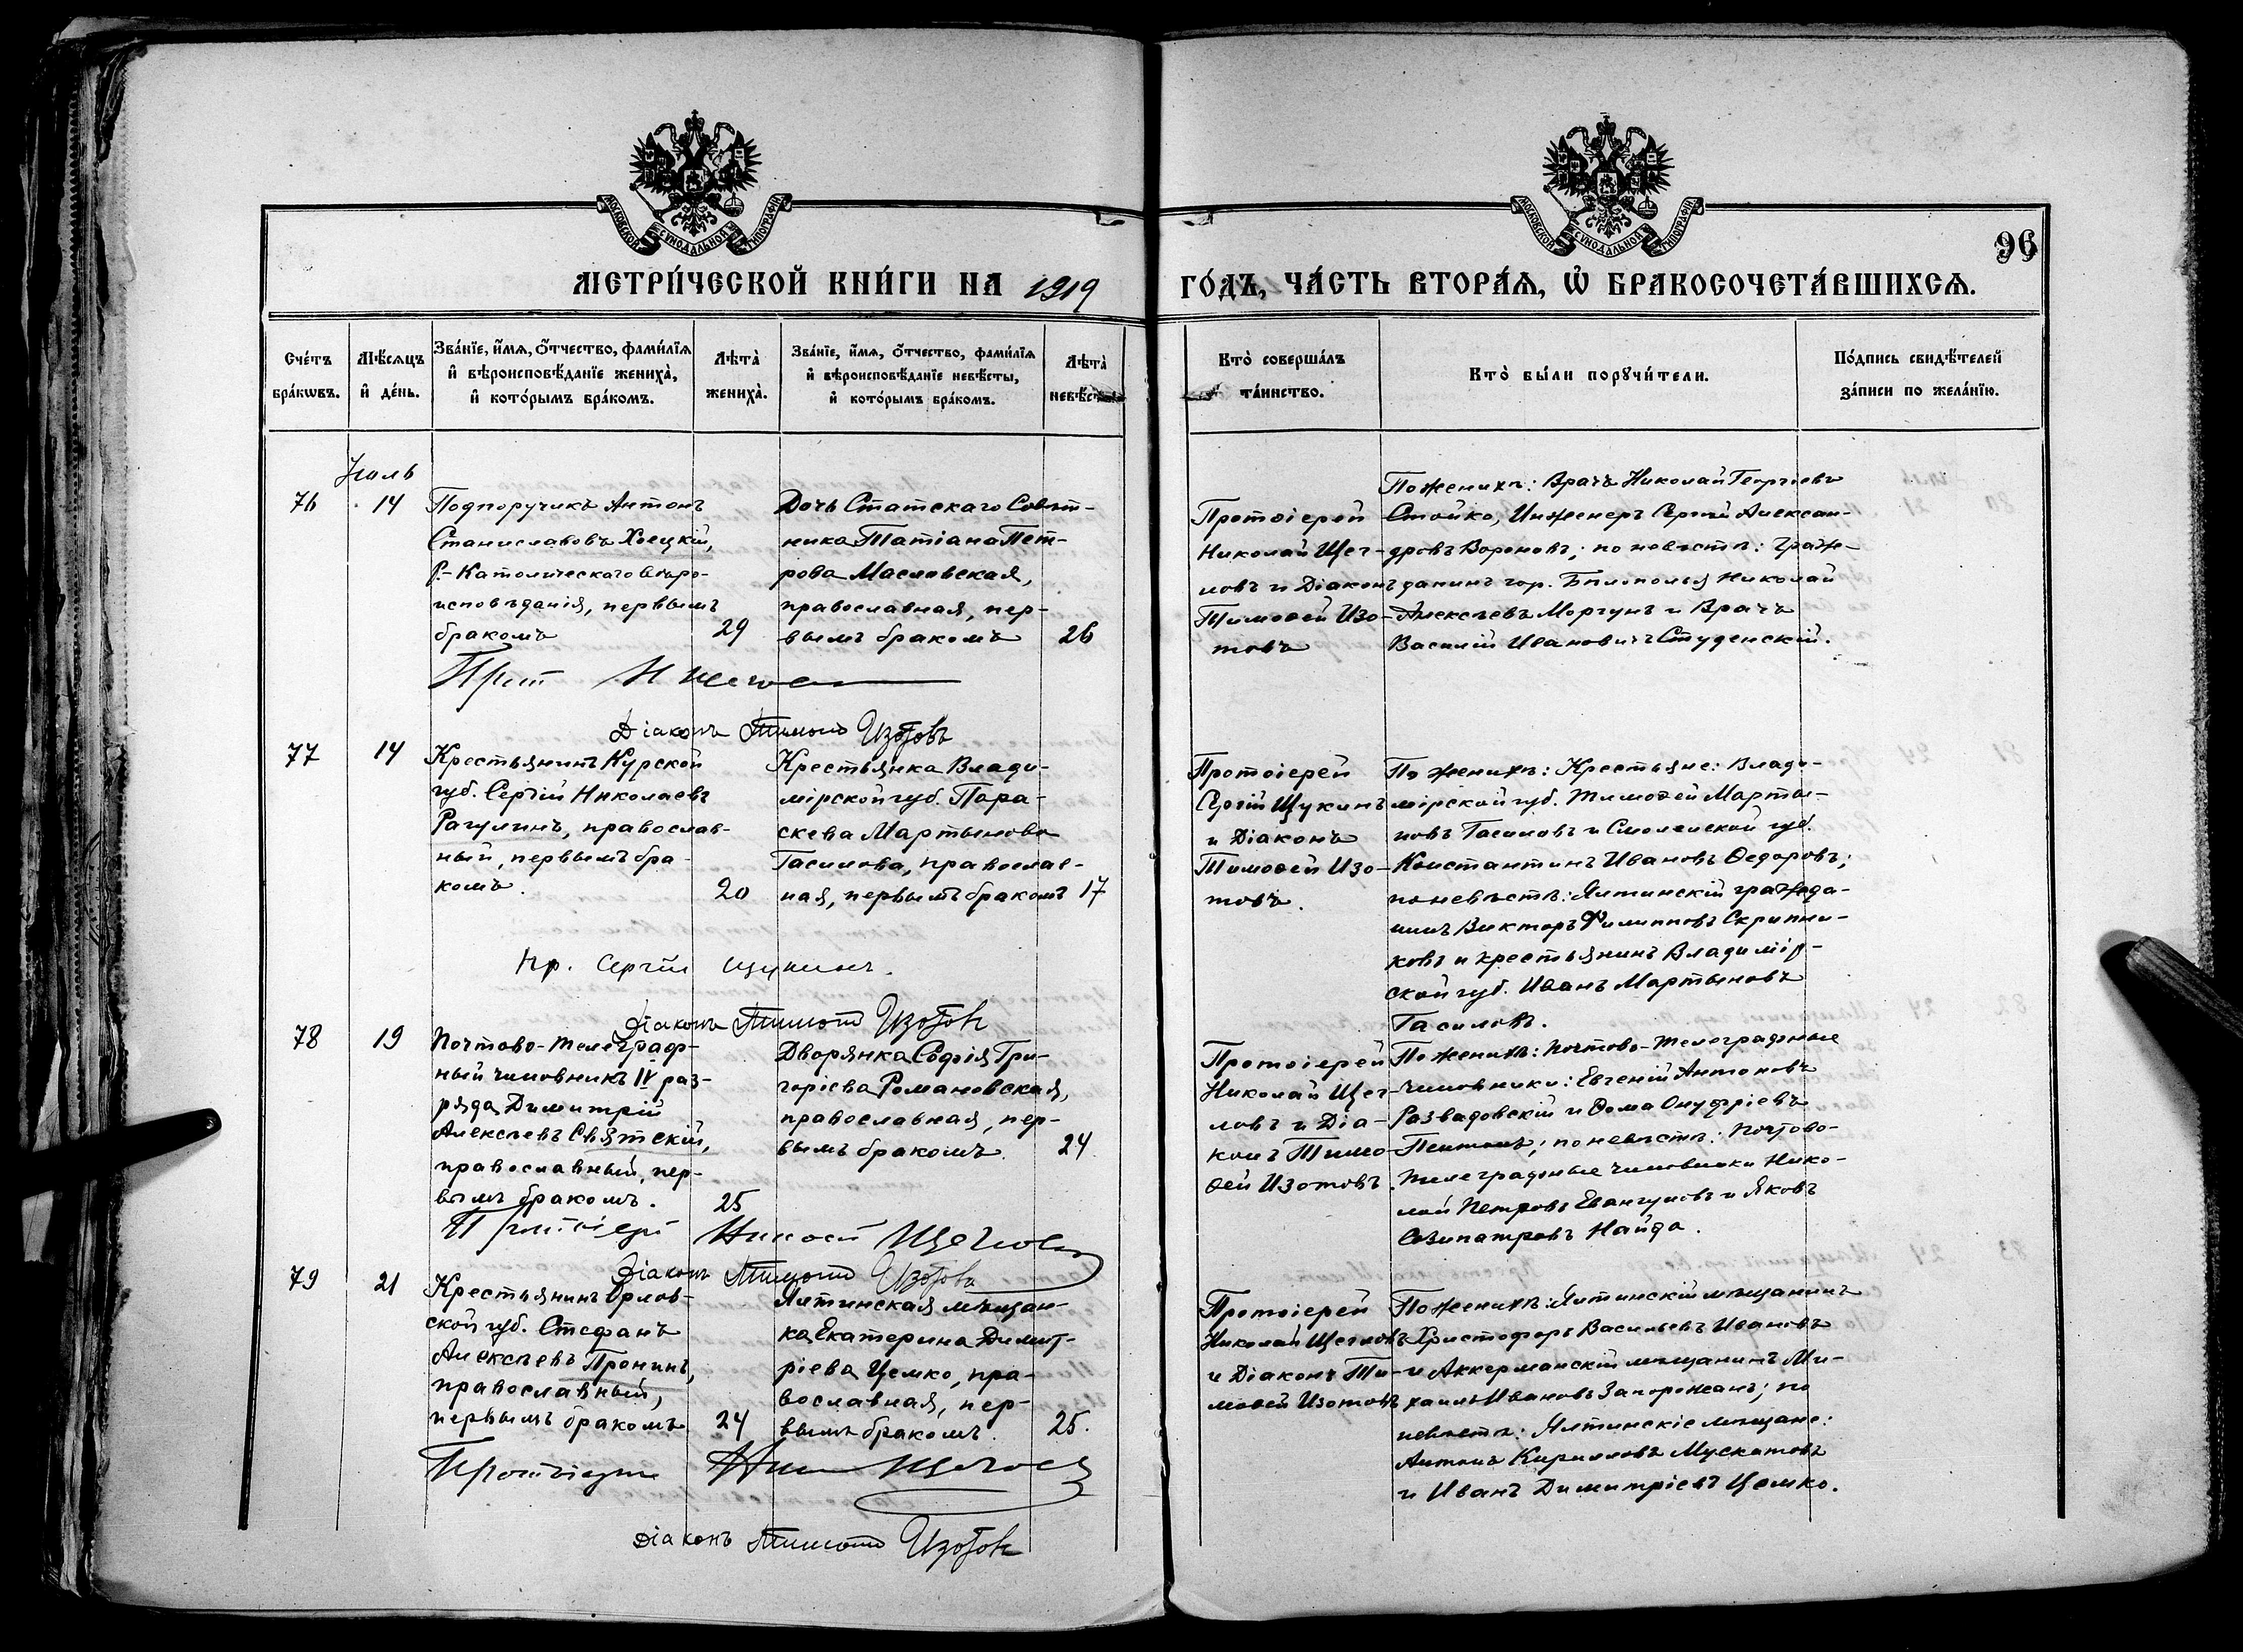 МОСКОВСКОЙ СѴНОДАЛЬНОЙ ТИПОГРАФІИ
МОСКОВСКОЙ СѴНОДАЛЬНОЙ ТИПОГРАФІИ
96
МЕТРИ́ЧЕСКОЙ КНИ́ГИ НА 1919 ГО́ДЪ, ЧА́СТЬ ВТОРА́Ѧ, Ѡ҆ БРАКОСОЧЕТА́ВШИХСѦ.
Сче́тъ бра́кѡвъ.
Мѣ́сяцъ и҆ де́нь.
Зва́нїе, и҆́мѧ, ѻ҆́тчество, фами́лїѧ
и҆ вѣроисповѣ́данїе жениха̀,
и҆ кото́рымъ бра́комъ.
Лѣта̀ жениха̀.
Зва́нїе, и҆́мѧ, ѻ҆́тчество, фами́лїѧ
и҆ вѣроисповѣ́данїе невѣ́сты,
и҆ кото́рымъ бра́комъ.
Лѣта̀ невѣ́сты
Кто̀ соверша́лъ
та́инство.
Кто̀ бы́ли порꙋчи́тели.
По́дпись свидѣ́телей
за́писи по жела́нїю.
Іюль
76
14
Подпоручикъ Антонъ
Станиславовъ Хоецкій,
Р.-Католическаго вѣро-
исповѣданія, первымъ
бракомъ
29
Дочь Статскаго Совѣт-
ника Татіана Пет-
рова Масловская,
православная, пер-
вымъ бракомъ
26
Протоіерей
Николай Щег-
ловъ и Діаконъ
Тимоѳей Изо-
товъ
По женихѣ: Врачъ Николай Георгіевъ
Стойко, Инженеръ Сергій Алексан-
дровъ Вороновъ; по невѣстѣ: Граж-
данинъ гор. Бѣлополья Николай
Алексѣевъ Моргунъ и Врачъ
Василій Ивановичъ Студенскій.
Прот Н Щегло
Діаконъ Тимоѳей Изотовъ
77
14
Крестьянинъ Курской
губ. Сергій Николаевъ
Рагулинъ, православ-
ный, первымъ бра-
комъ.
20
Крестьянка Влади-
мірской губ. Пара-
скева Мартынова
Гасилова, православ-
ная, первымъ бракомъ
17
Протоіерей
Сергій Щукинъ
и Діаконъ
Тимоѳей Изо-
товъ.
По женихѣ: Крестьяне: Влади-
мірской губ. Тимоѳей Марты-
новъ Гасиловъ и Смоленской губ.
Константинъ Ивановъ Ѳедоровъ;
по невѣстѣ: Ялтинскій гражда-
нинъ Викторъ Филипповъ Скрипни-
ковъ и крестьянинъ Владимір-
ской губ. Иванъ Мартыновъ
Гасиловъ.
Пр. Сергій Щукинъ.
Діаконъ Тимоѳей Изотовъ
78
19
Почтово-телеграф-
ный чиновникъ IV раз-
ряда Димитрій
Алексѣевъ Святскій,
православный, пер-
вымъ бракомъ.
25
Дворянка Софія Гри-
горіева Романовская,
православная, пер-
вымъ бракомъ.
24
Протоіерей
Николай Щег-
ловъ и Діа-
конъ Тимо-
ѳей Изотовъ.
По женихѣ: Почтово-телеграфные
чиновники: Евгеній Антоновъ
Развадовскій и Ѳома Онуфріевъ
по невѣстѣ: Почтово-
телеграфные чиновники Нико-
лай Петровъ Евангуловъ и Яковъ
Созипатровъ Найда.
Протоіерей Николай Щегловъ
Діаконъ Тимоѳей Изотовъ
79
21
Крестьянинъ Орлов-
ской губ. Стефанъ
Алексѣевъ Пронинъ,
православный,
первымъ бракомъ
24
Ялтинская мѣщан-
ка Екатерина Димит-
ріева Цемко, пра-
вославная, пер-
вымъ бракомъ.
25.
Протоіерей
Николай Щегловъ
и Діаконъ Ти-
моѳей Изотовъ
По женихѣ: Ялтинскій мѣщанинъ
Христофоръ Васильевъ Ивановъ
и Аккерманскій мѣщанинъ Ми-
хаилъ Ивановъ Запорожанъ; по
невѣстѣ: Ялтинскіе мѣщане:
Антонъ Кирилловъ Мускатовъ
и Иванъ Димитріевъ Цемко.
Протоіерей Ник Щегловъ
Діаконъ Тимоѳей Изотовъ